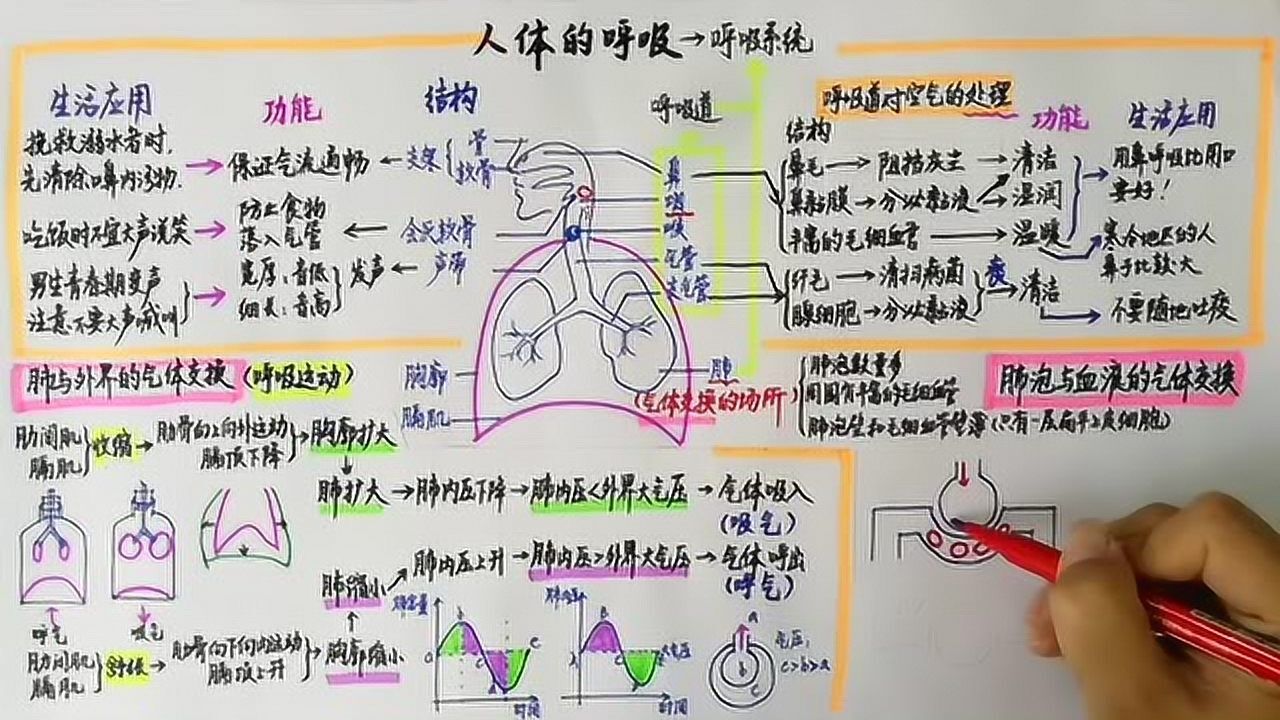 人体的呼吸→呼吸系统
生活应用
功能
结构
呼吸道
挽救溺水者时,
先清除口鼻内污物.
保证气流通畅
支架
骨
软骨
吃饭时不宜大声说笑
防止食物
落入气管
会厌软骨
男生青春期变声
注意不要大声喊叫
宽厚:音低
细长:音高
发声
声带
鼻
咽
喉
气管
支气管
肺
(气体交换的场所)
胸廓
膈肌
呼吸道对空气的处理
结构
功能
生活应用
鼻毛→阻挡灰尘→清洁
鼻黏膜→分泌黏液→湿润
丰富的毛细血管→温暖
用鼻呼吸比用口
要好!
寒冷地区的人
鼻子比较大
纤毛→清扫病菌
腺细胞→分泌黏液
痰
清洁
不要随地吐痰
肺与外界的气体交换(呼吸运动)
肋间肌
膈肌
收缩
肋骨向上向外运动
膈顶下降
胸廓扩大
肺扩大→肺内压下降→肺内压<外界大气压→气体吸入
(吸气)
肺缩小
肺内压上升→肺内压>外界大气压→气体呼出
(呼气)
呼气
吸气
肋间肌
膈肌
舒张
肋骨向下向内运动
膈顶上升
胸廓缩小
肺容量
时间
肺内压
大气压
时间
a
b
c
气压:
c>b>a
肺泡数量多
周围有丰富的毛细血管
肺泡壁和毛细血管壁薄(只有一层扁平上皮细胞)
肺泡与血液的气体交换